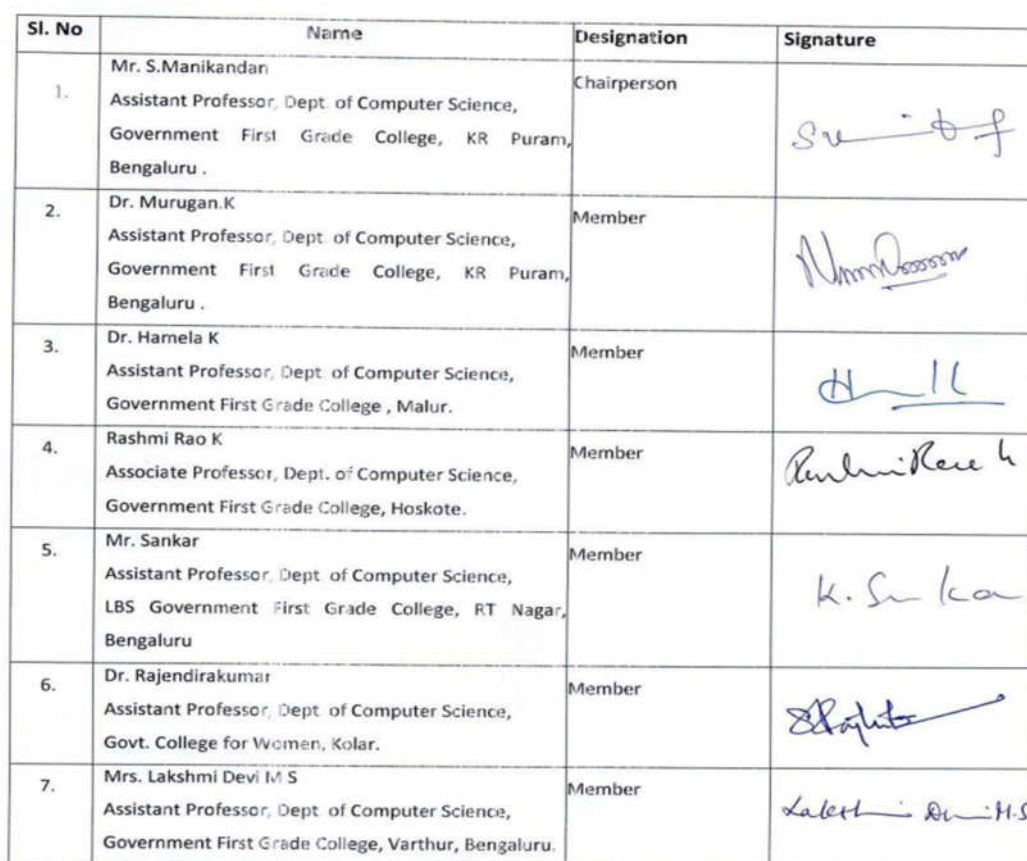 Sl. No Name Designation Signature
1. Mr. S.Manikandan Chairperson
Assistant Professor, Dept. of Computer Science,
Government First Grade College, KR Puram,
Bengaluru .
2. Dr. Murugan.K Member
Assistant Professor, Dept. of Computer Science,
Government First Grade College, KR Puram,
Bengaluru .
3. Dr. Hamela K Member
Assistant Professor, Dept. of Computer Science,
Government First Grade College , Malur.
4. Rashmi Rao K Member
Associate Professor, Dept. of Computer Science,
Government First Grade College, Hoskote.
5. Mr. Sankar Member
Assistant Professor, Dept. of Computer Science,
LBS Government First Grade College, RT Nagar,
Bengaluru
6. Dr. Rajendirakumar Member
Assistant Professor, Dept. of Computer Science,
Govt. College for Women, Kolar.
7. Mrs. Lakshmi Devi M S Member
Assistant Professor, Dept. of Computer Science,
Government First Grade College, Varthur, Bengaluru.